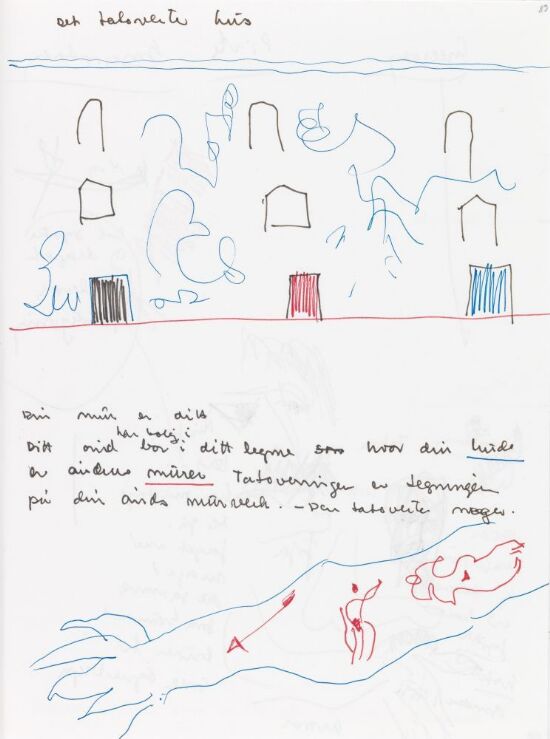 det tatoverte hus
83
Din mur er ditt
Ditt ånd bor i ditt legeme som hvor din hude
har bolig i
er åndens muren Tatoveringen er tegningen
på din ånds murverk. – Den tatoverte neger.